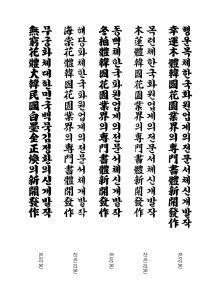 행운목체한국화원업계의전문서체신개발작
幸運木體韓國花園業界의專門書體新開發作
목련체한국화원업계의전문서체신개발작
木蓮體韓國花園業界의專門書體新開發作
동백체한국화원업계의전문서체신개발작
冬柏體韓國花園業界의專門書體新開發作
해당화체한국화원업계의전문서체개발작
海棠花體韓國花園業界의專門書體開發作
무궁화체대한민국백묵김정환의신개발작
無窮花體大韓民國白墨金正煥의新開發作